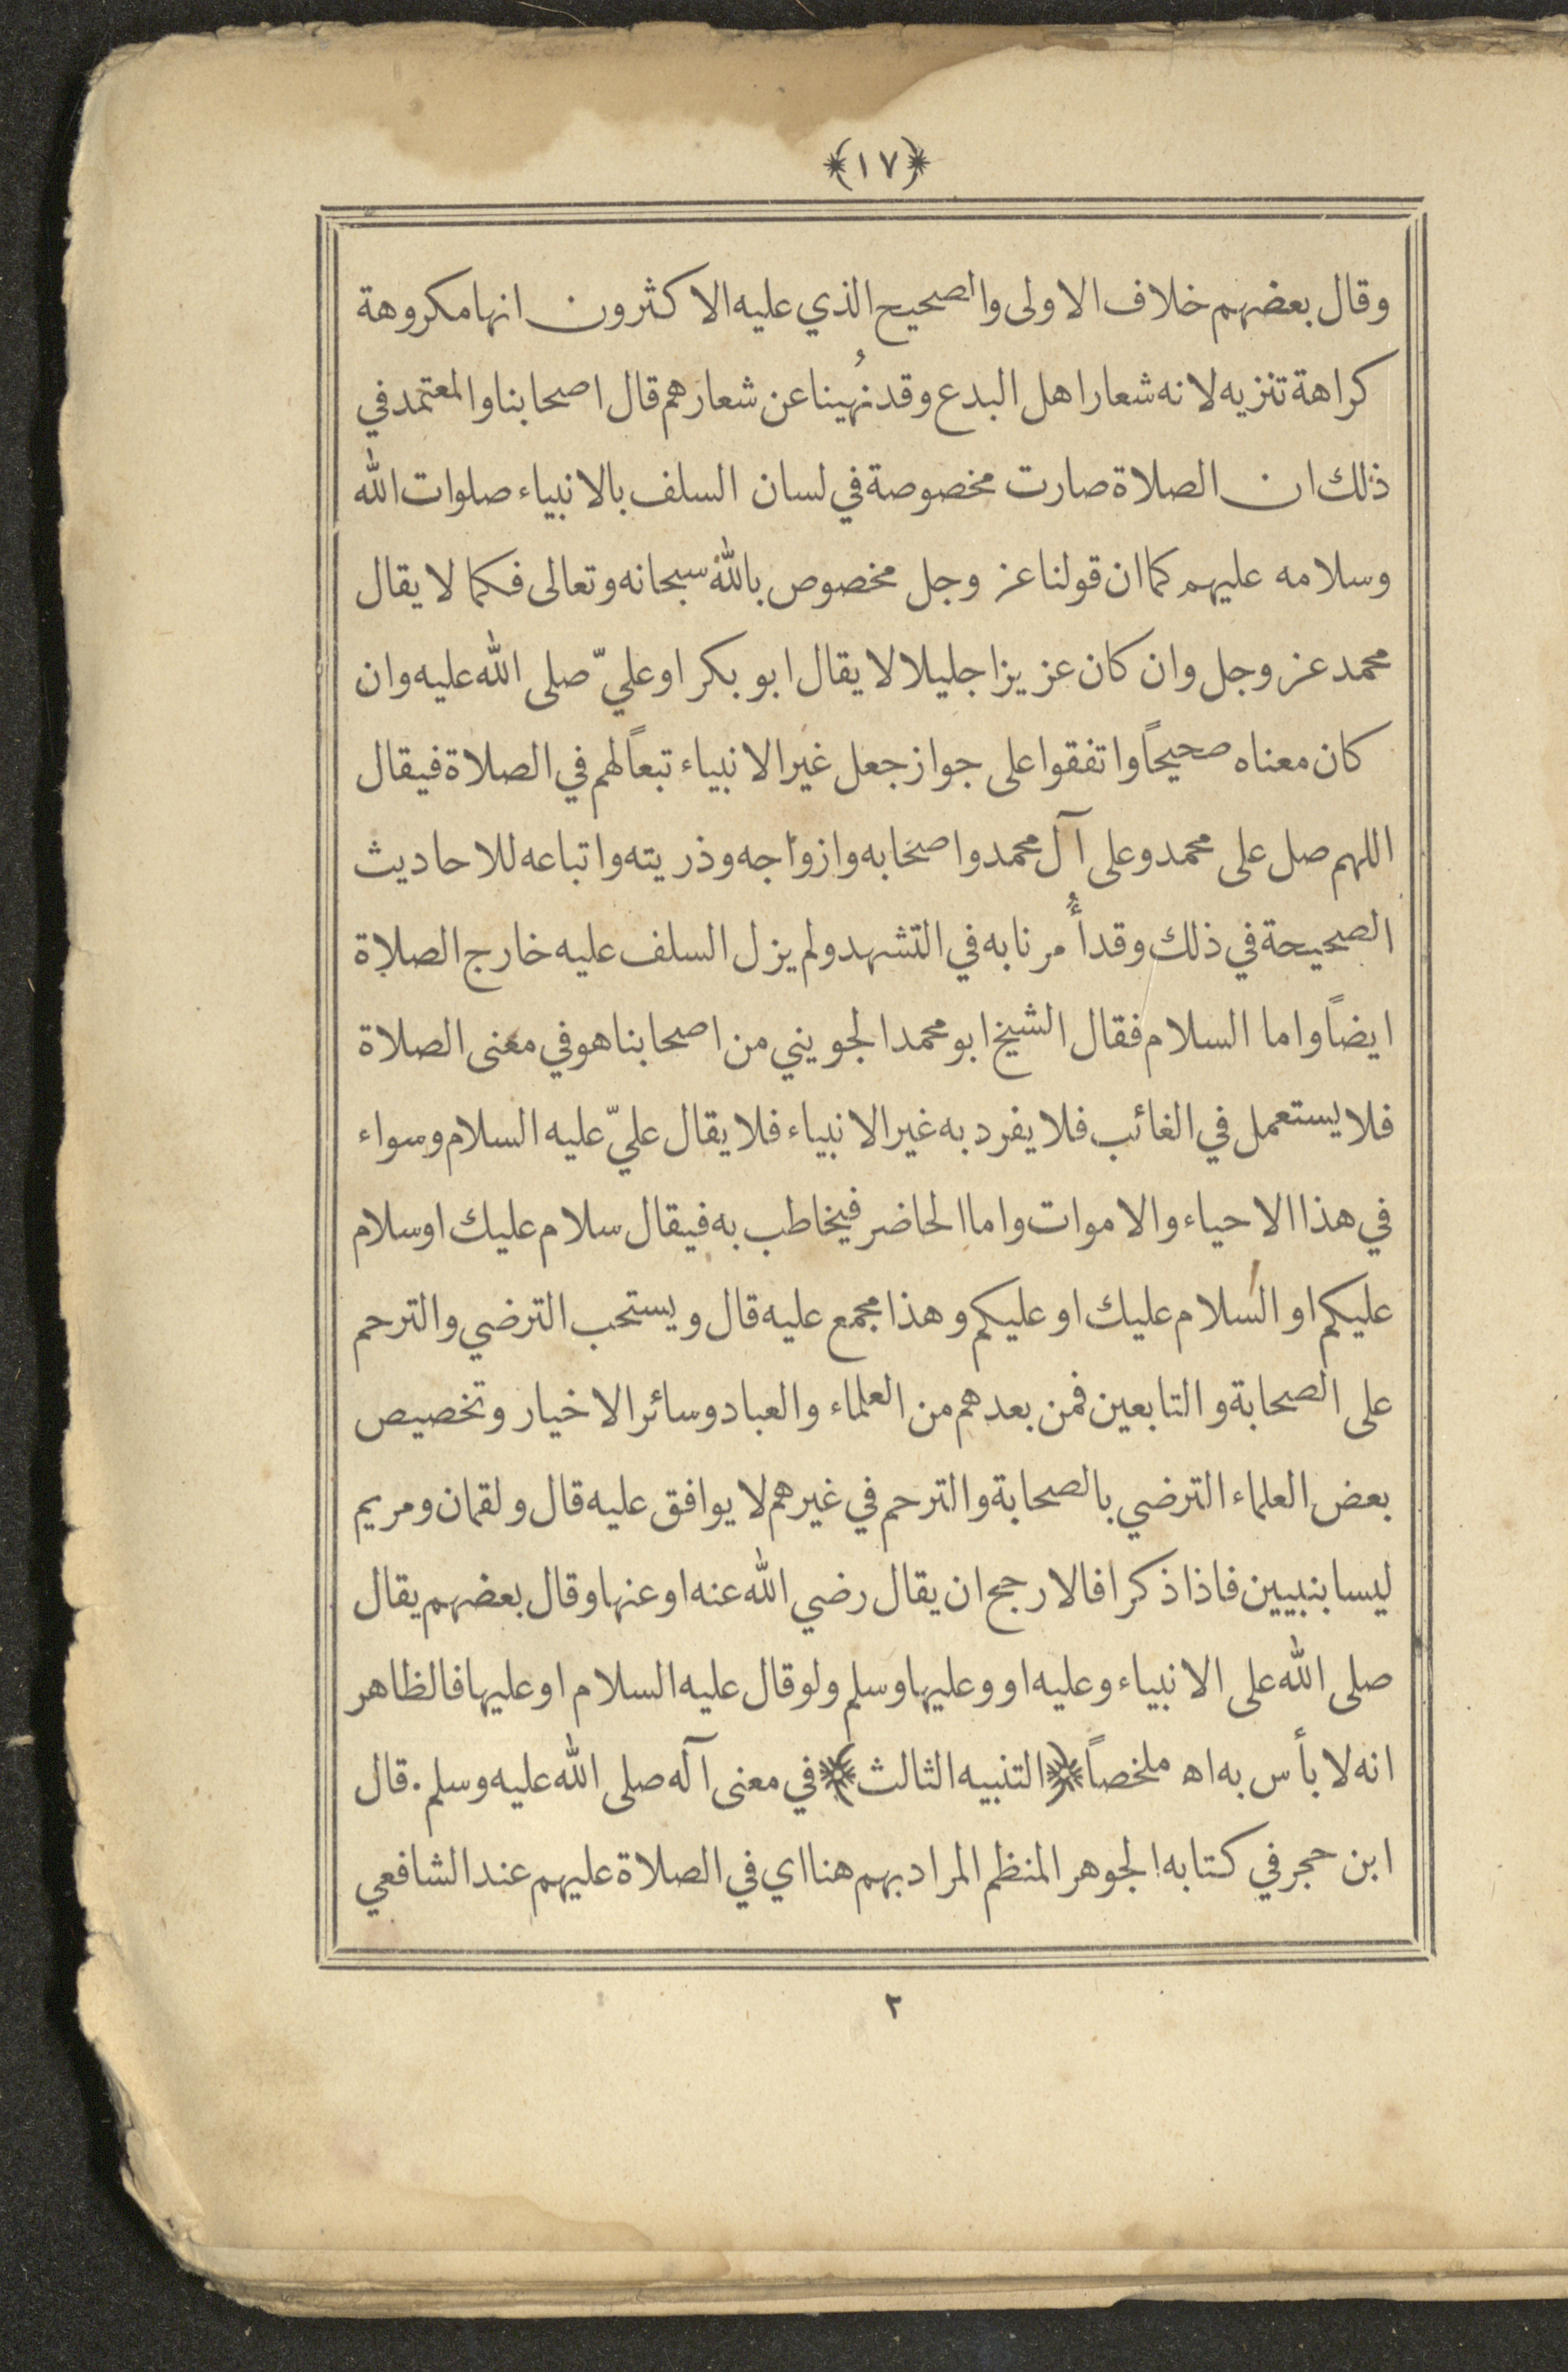 ﴿١٧﴾
وقال بعضهم خلاف الاولى والصحيح الذي عليه الاكثرون انها مكروهة
كراهة تنزيه لانه شعار اهل البدع وقد نُهينا عن شعارهم قال اصحابنا والمعتمد في
ذلك ان الصلاة صارت مخصوصة في لسان السلف بالانبياء صلوات الله
وسلامه عليهم كما ان قولنا عز وجل مخصوص بالله سبحانه وتعالى فكما لا يقال
محمد عز وجل وان كان عزيزا جليلا لا يقال ابو بكر او عليّ صلى الله عليه وان
كان معناه صحيحاً واتفقوا على جواز جعل غير الانبياء تبعاً لهم في الصلاة فيقال
اللهم صل على محمد وعلى آل محمد واصحابه وازواجه وذريته واتباعه للاحاديث
الصحيحة في ذلك وقد أُمرنا به في التشهد ولم يزل السلف عليه خارج الصلاة
ايضاً واما السلام فقال الشيخ ابو محمد الجويني من اصحابنا هو في معنى الصلاة
فلا يستعمل في الغائب فلا يفرد به غير الانبياء فلا يقال عليّ عليه السلام وسواء
في هذا الاحياء والاموات واما الحاضر فيخاطب به فيقال سلام عليك او سلام
عليكم او السلام عليك او عليكم وهذا مجمع عليه قال ويستحب الترضي والترحم
على الصحابة والتابعين فمن بعدهم من العلماء والعباد وسائر الاخيار وتخصيص
بعض العلماء الترضي بالصحابة والترحم في غيرهم لا يوافق عليه قال ولقمان ومريم
ليسا بنبيين فاذا ذكرا فالارجح ان يقال رضي الله عنه او عنها وقال بعضهم يقال
صلى الله على الانبياء وعليه او وعليها وسلم ولو قال عليه السلام او عليها فالظاهر
انه لا بأس به اه ملخصاً ﴿التنبيه الثالث﴾ في معنى آله صلى الله عليه وسلم . قال
ابن حجر في كتابه الجوهر المنظم المراد بهم هنا اي في الصلاة عليهم عند الشافعي
٢